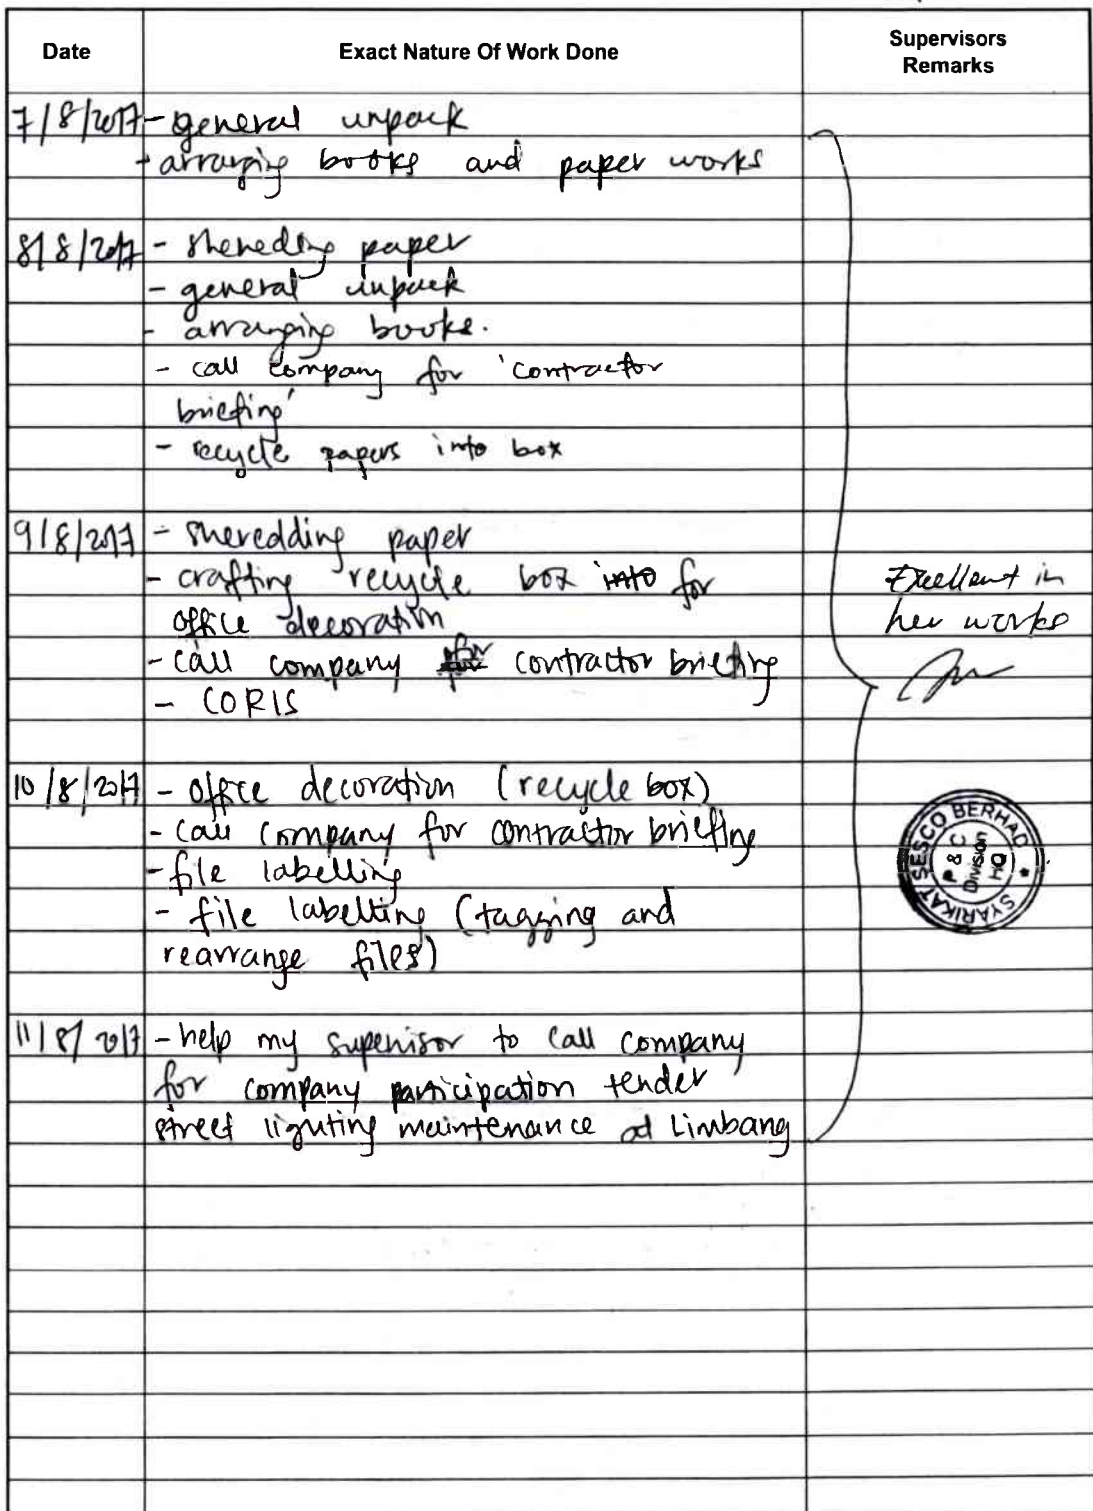 Date Exact Nature Of Work Done Supervisors Remarks
7/8/2017 - general unpack
- arranging books and paper works
8/8/2017 - shereding paper
- general unpack
- arranging books.
- call company for 'contractor
briefing'
- recycle papers into box
9/8/2017 - sheredding paper
- crafting recycle box into for
office decoration
- call company for contractor briefing
- CORIS
Excellent in
her works
10/8/2017 - office decoration (recycle box)
- call company for contractor briefing
- file labelling
- file labelling (tagging and
rearrange files)
SYARIKAT SESCO BERHAD
P & C
DIVISION
HQ
11/8/2017 - help my supervisor to call company
for company participation tender
street lighting maintenance at Limbang